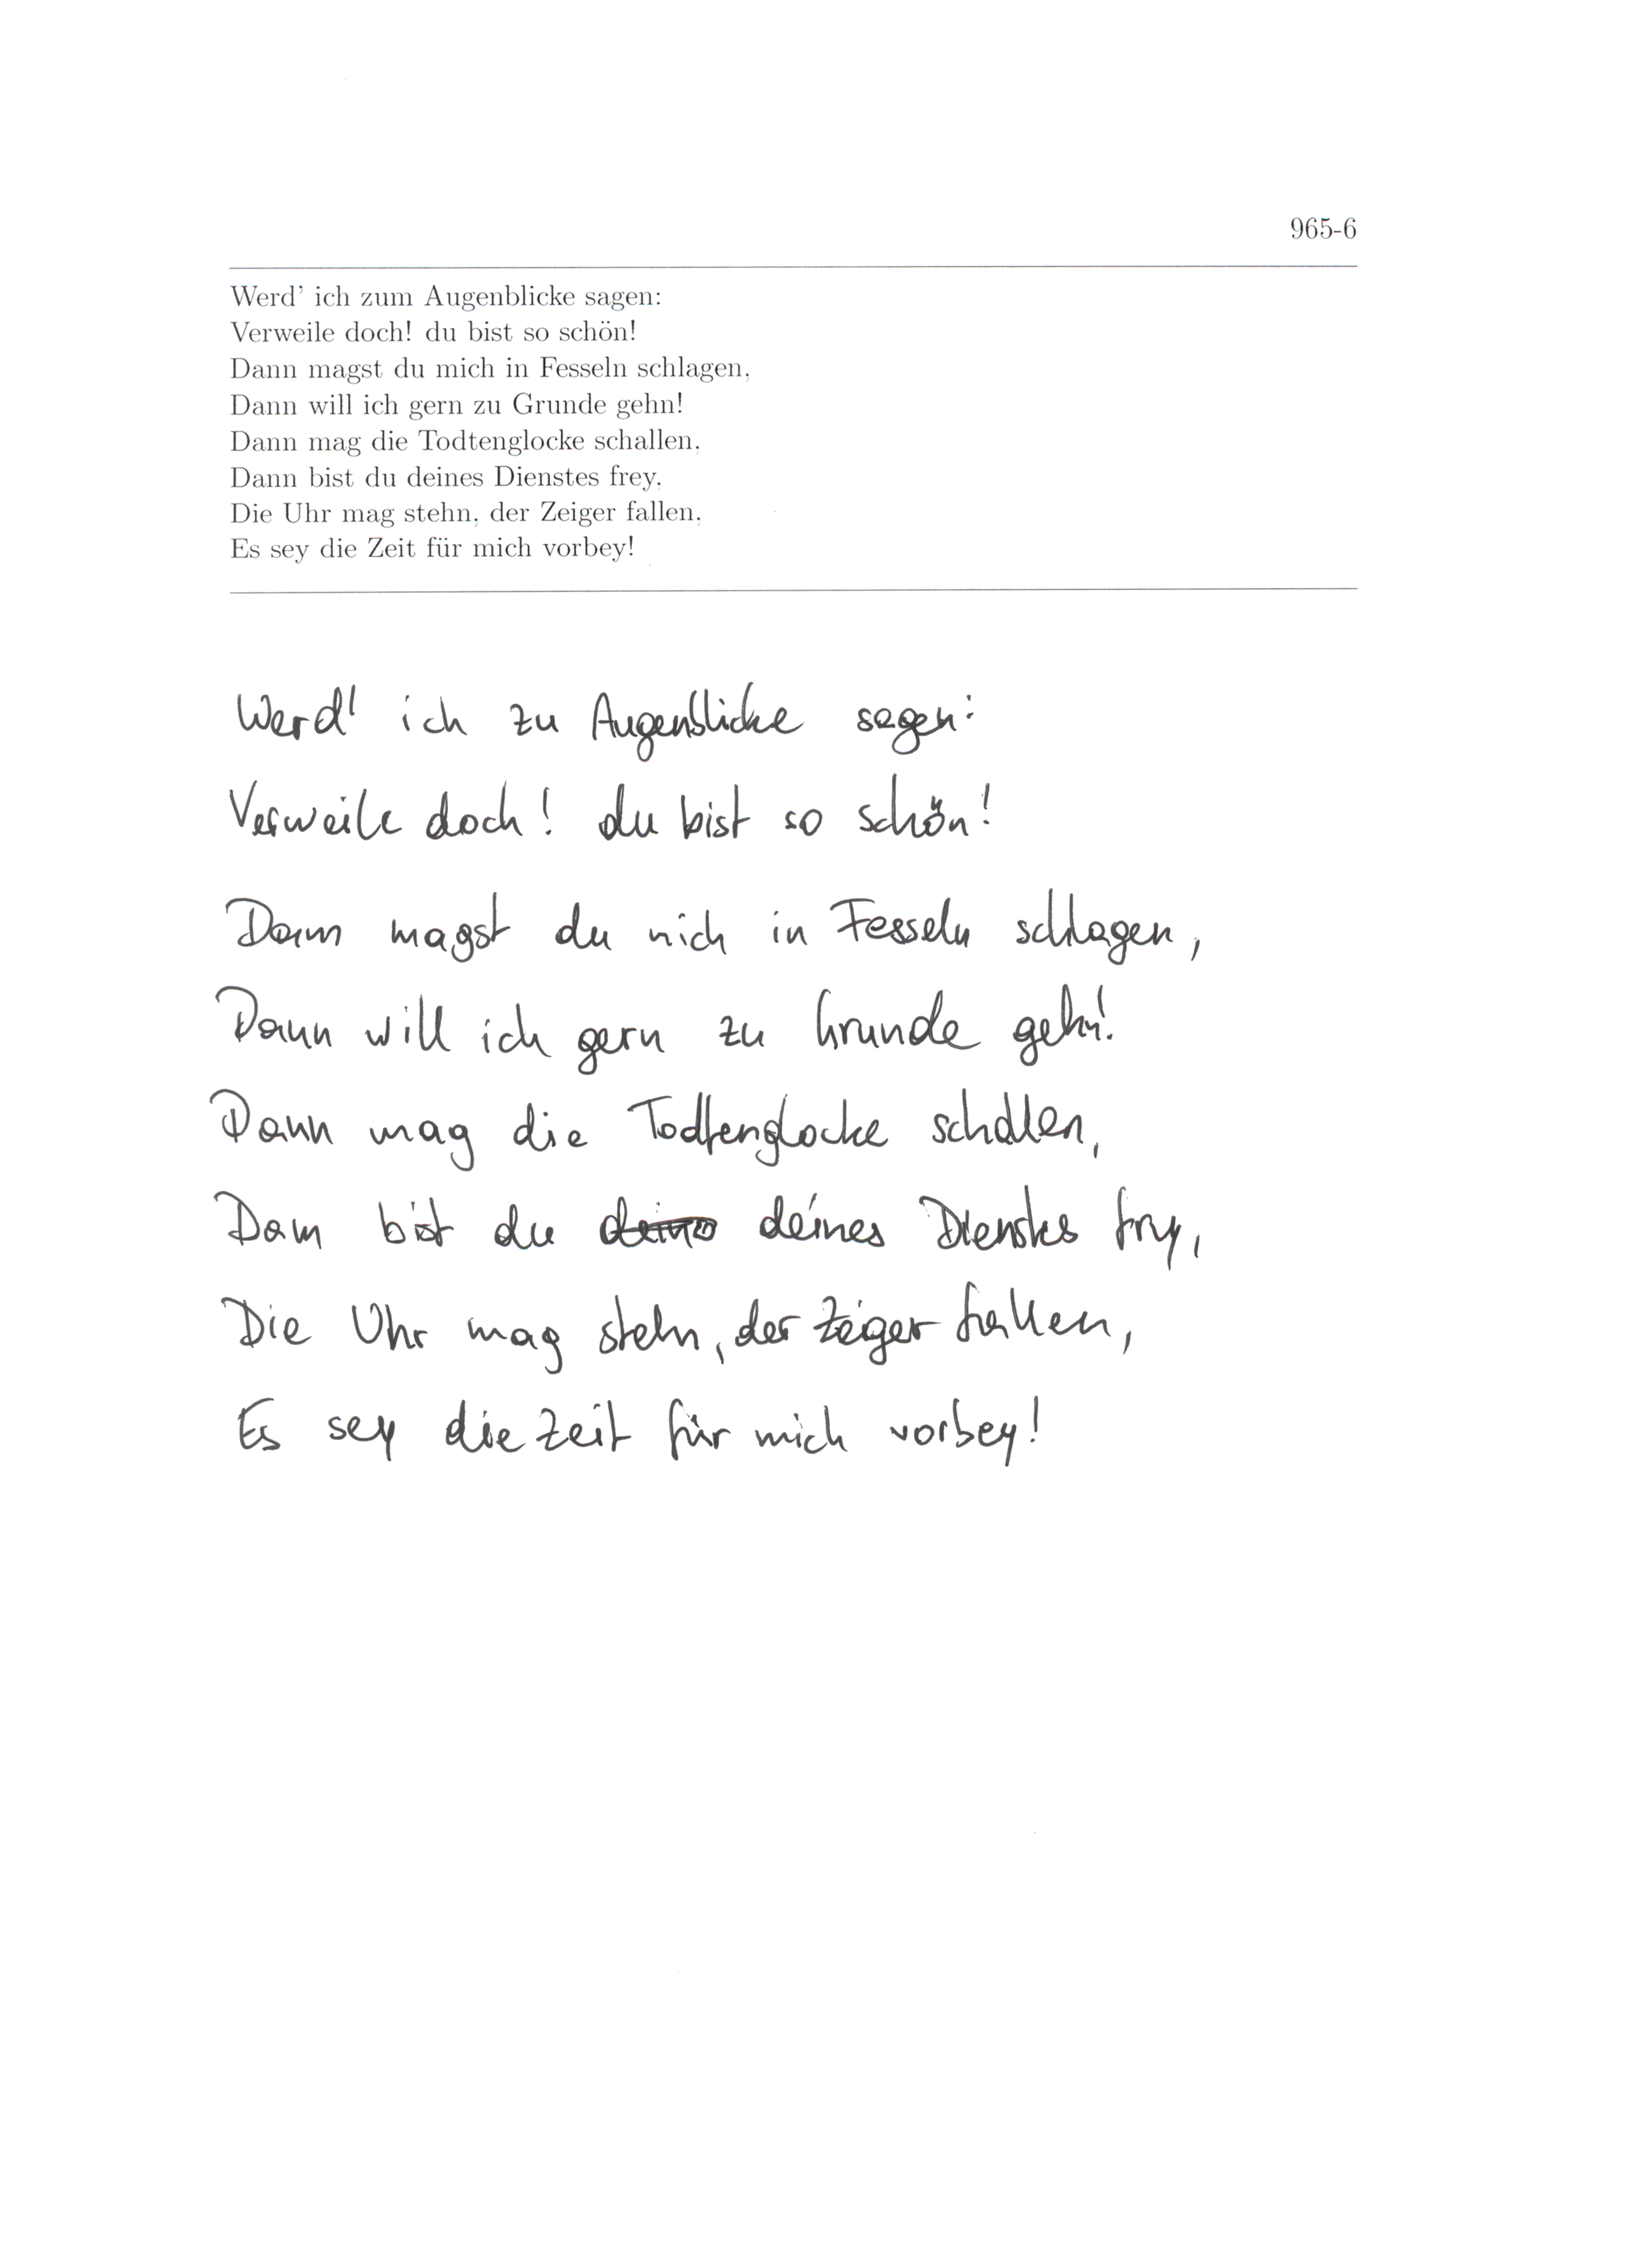 965-6
Werd' ich zum Augenblicke sagen:
Verweile doch! du bist so schön!
Dann magst du mich in Fesseln schlagen,
Dann will ich gern zu Grunde gehn!
Dann mag die Todtenglocke schallen,
Dann bist du deines Dienstes frey,
Die Uhr mag stehn, der Zeiger fallen,
Es sey die Zeit für mich vorbey!
Werd' ich zu Augenblicke sagen:
Verweile doch! du bist so schön!
Dann magst du mich in Fesseln schlagen,
Dann will ich gern zu Grunde gehn!
Dann mag die Todtenglocke schallen,
Dann bist du deines Dienstes frey,
Die Uhr mag stehn, der Zeiger fallen,
Es sey die Zeit für mich vorbey!